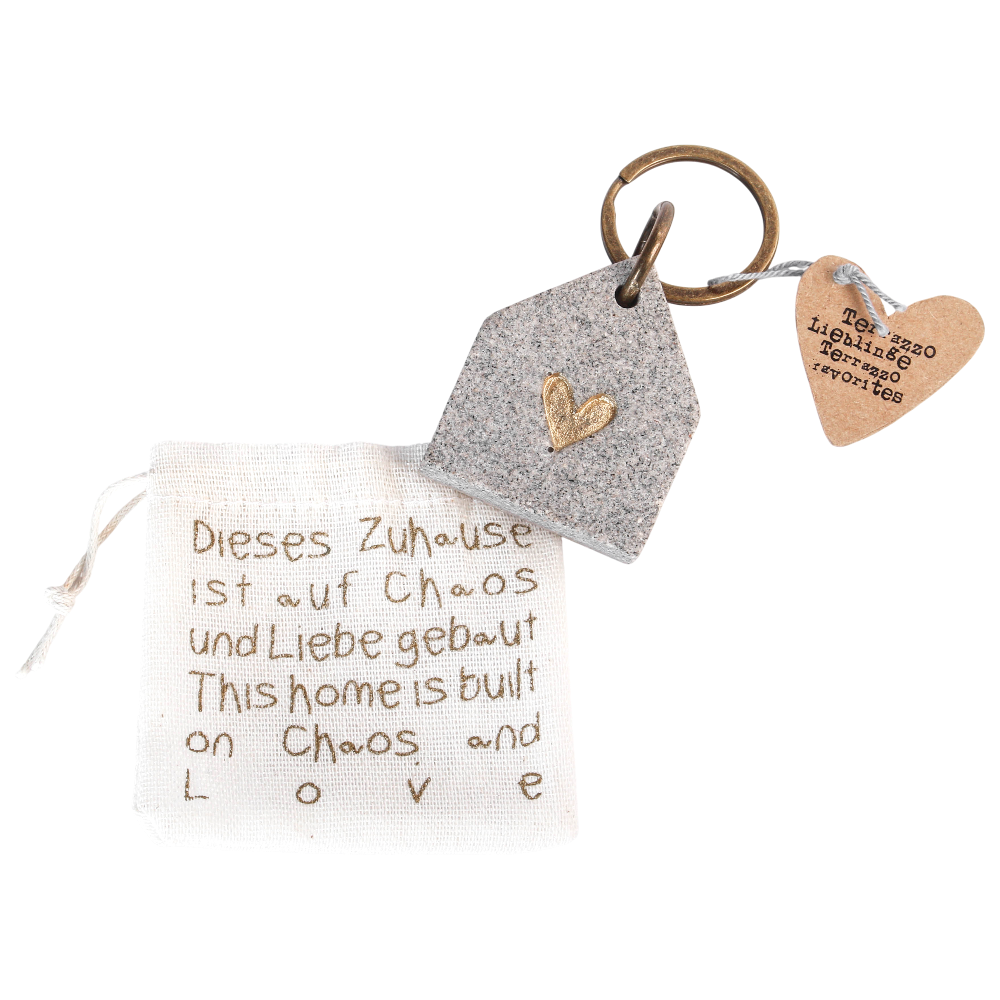 Dieses Zuhause
ist auf Chaos
und Liebe gebaut
This home is built
on Chaos and
Love
Terrazzo
Lieblinge
Terrazzo
favorites